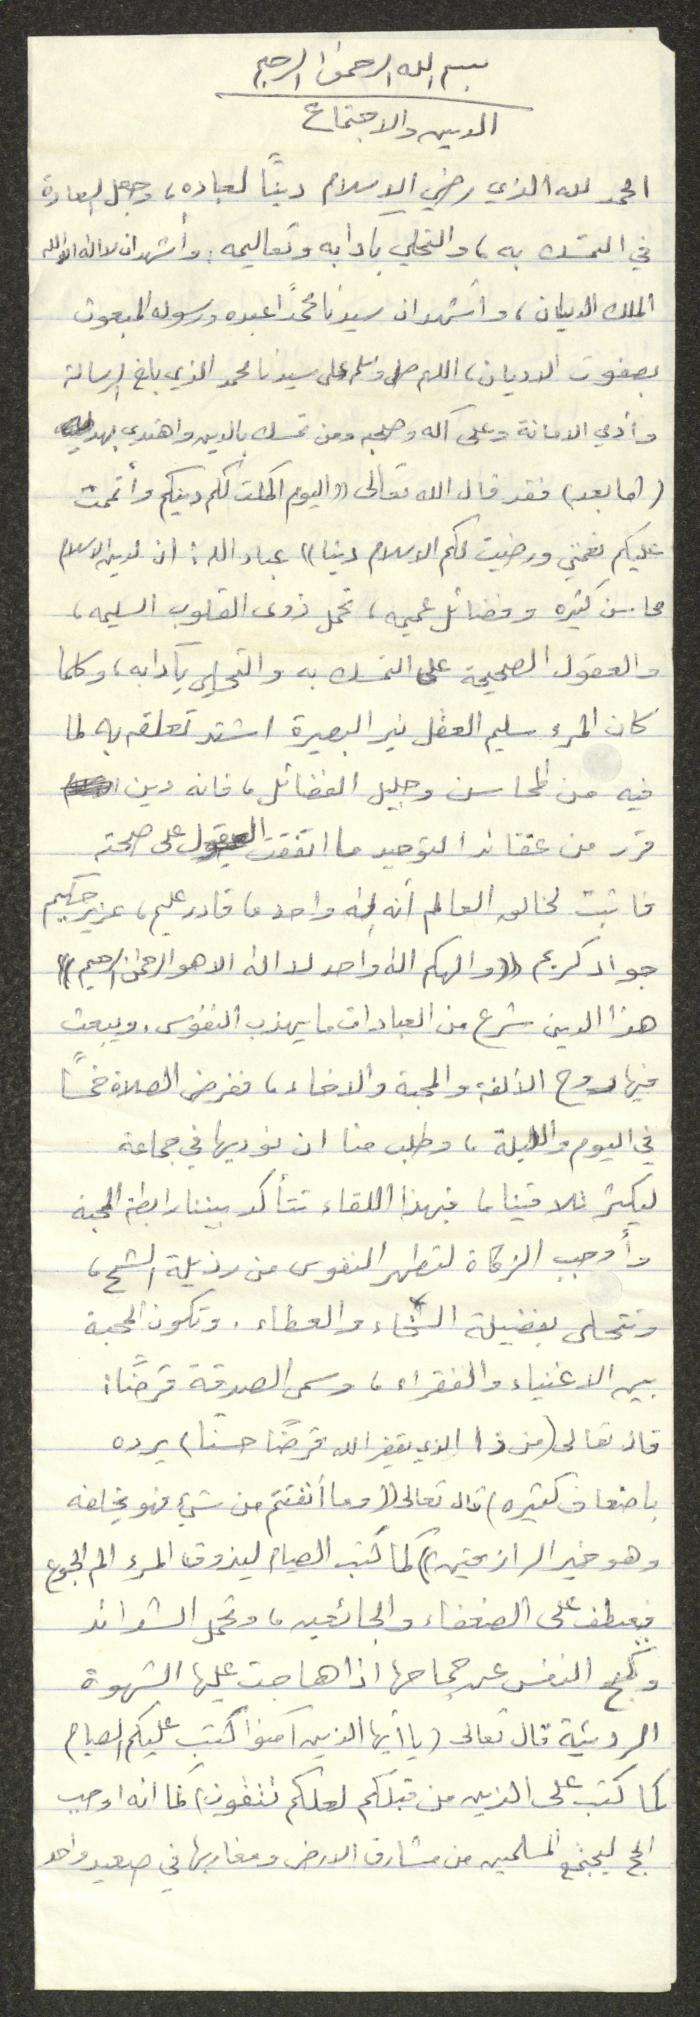 بسم الله الرحمن الرحيم
الدين والاجتماع
الحمد لله الذي رضي الاسلام دينًا لعباده، وجعل السعادة
في التمسك به، والتحلي بآدابه وتعاليمه، وأشهد ان لا اله الا الله
الملك الديان، وأشهد ان سيدنا محمدًا عبده ورسوله المبعوث
بصفوت الاديان، اللهم صل وسلم على سيدنا محمد الذي بلغ الرسالة
وأدى الامانة وعلى آله وصحبه ومن تمسك بالدين واهتدى بهديه
(اما بعد) فقد قال الله تعالى ((اليوم اكملت لكم دينكم وأتممت
عليكم نعمتي ورضيت لكم الاسلام دينا)) عباد الله: ان لدين الاسلام
محاسن كثيره وفضائل عميمه، تحمل ذوى القلوب السليمه،
والعقول الصحيحة على التمسك به والتحلي بآدابه، وكلما
كان المرء سليم العقل نير البصيرة اشتد تعلقه به لما
فيه من المحاسن وجليل الفضائل، فانه دين
قرر من عقائد التوحيد ما اتفقت العقول على صحته
فاثبت لخالق العالم أنه إله واحد، قادر عليم، عزيز حكيم
جواد كريم ((والهكم اله واحد لا اله الا هو الرحمن الرحيم))
هذا الدين شرع من العبادات ما يهذب النفوس، ويبعث
فيها روح الألفة والمحبة والاخاء، ففرض الصلاة خمسًا
في اليوم والليلة، وطلب منا ان نوديها في جماعة
ليكثر تلاقينا، فبهذا اللقاء تتأكد بيننا رابطة المحبة
وأوجب الزكاة لتطهر النفوس من رذيلة الشح،
وتتحلى بفضيلة السخاء والعطاء، وتكون المحبة
بين الاغنياء والفقراء، وسمى الصدقة قرضًا:
قال تعالى (من ذا الذي يقرض الله قرضًا حسنًا) يرده
باضعاف كثيره) قال تعالى ((وما أنفقتم من شيء فهو يخلفه
وهو خير الرازقين)) كما كتب الصيام ليذوق المرء الم الجوع
فيعطف على الضعفاء والجائعين، وتحمل الشدائد
وكبح النفس عن جماحها اذا هاجت عليها الشهوة
الرديئة قال تعالى (يا أيها الذين آمنوا كتب عليكم الصيام
كما كتب على الذين من قبلكم لعلكم تتقون) كما انه اوجب
الحج ليجتمع المسلمين من مشارق الارض ومغاربها في صعيد واحد